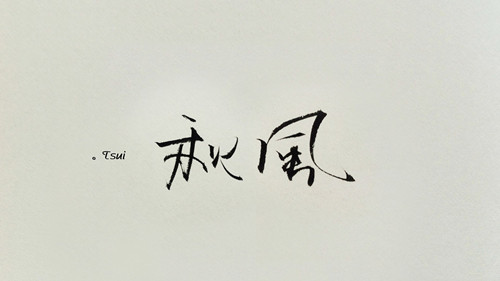 。Tsui
秋風